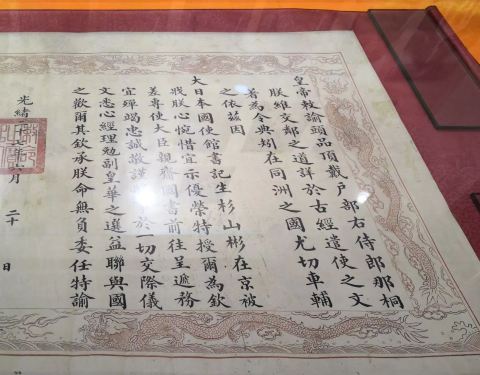 皇帝敕諭頭品頂戴戶部右侍郎那桐
朕維交鄰之道詳於古經遣使之文
著為令典矧在同洲之國尤切車輔
之依茲因
大日本國使館書記生杉山彬在京被
戕朕心惋惜宜示優榮特授爾為欽
差專使大臣親齎國書前往呈遞務
宜殫竭忠誠敬謹於一切交際儀
文悉心經理勉副皇華之選益聯與國
之歡爾其欽承朕命無負委任特諭
光緒二十七年六月 二十 日